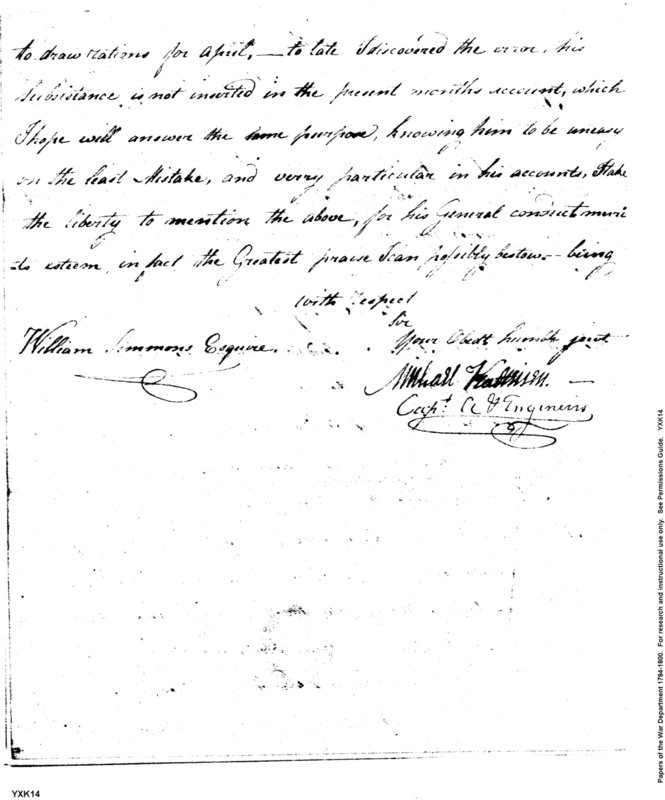 to draw rations for April, — to late I discovered the error, his
Subsistance is not inserted in the present months account, which
I hope will answer the same purpose, knowing him to be uneasy
on the least Mistake, and verry particular in his accounts, I take
the liberty to mention the above, for his General conduct meri
-ts esteem, in fact the Greatest praise I can possibly bestow — being
with respect
Sir
William Simmons Esquire. Your Obedt. humble
Michael Kalteisen. —
Capt. A & Engineers
Papers of the War Department 1784-1800. For research and instructional use only. See Permissions Guide. YXK14
YXK14